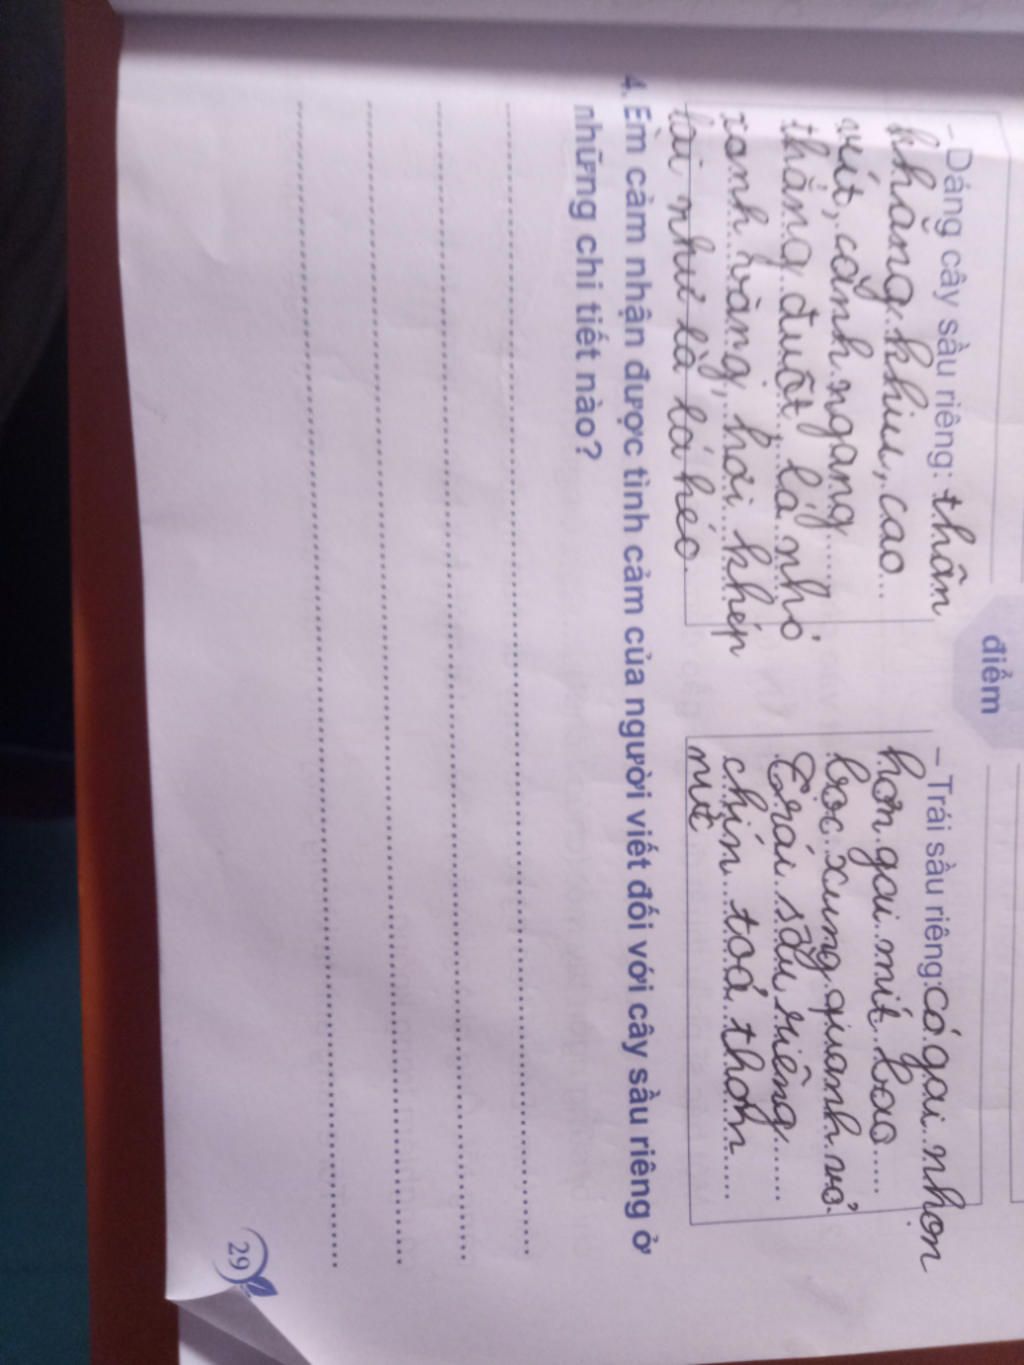 điểm
- Dáng cây sầu riêng: thân
khẳng khiu, cao
vút, cành ngang
thẳng đuột, lá nhỏ
xanh vàng, hơi khép
lại như là lá héo
- Trái sầu riêng: có gai nhọn
hơn gai mít bao
bọc xung quanh vỏ.
Trái sầu riêng
chín toả thơm
nứt
4. Em cảm nhận được tình cảm của người viết đối với cây sầu riêng ở
những chi tiết nào?
29